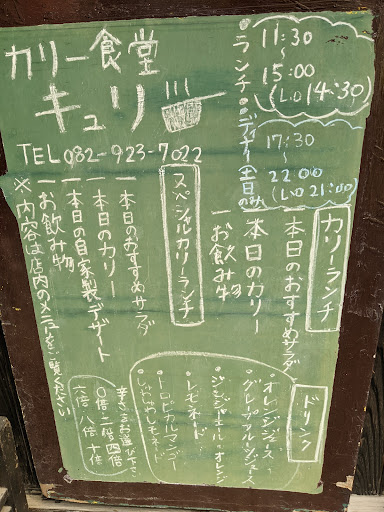 カリー食堂
キュリー
TEL 082-923-7022
・ランチ・
11:30
〜
15:00
(L.O 14:30)
・ディナー(土日のみ)
17:30
〜
22:00
(L.O 21:00)
カリーランチ
一本日のおすすめサラダ
一本日のカリー
一お飲み物
スペシャルカリーランチ
一本日のおすすめサラダ
一本日のカリー
一本日の自家製デザート
一お飲み物
※内容は店内のメニューをご覧ください
ドリンク
・オレンジジュース
・グレープフルーツジュース
・ジンジャーエール・オレンジ
・レモネード
・トロピカルマンゴー
・しゅわしゅわレモネード
辛さをお選び下さい
0倍 二倍 四倍
六倍 八倍 十倍